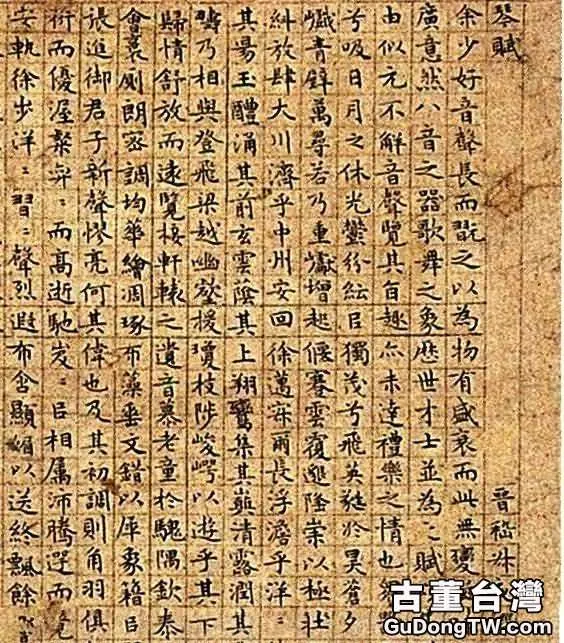 琴賦 晉嵇
余少好音聲長而翫之以為物有盛衰而此無變
廣意然八音之器歌舞之象歷世才士並為〻賦
由似元不解音聲覽其旨趣亦未達禮樂之情也
兮吸日月之休光鬱紛紜㠯獨茂兮飛英蕤於昊蒼夕
巇青壁萬尋若乃重巘增起偃蹇雲覆邈隆崇以極壯
糾放肆大川濟乎中州安回徐邁寂爾長浮澹乎洋〻
其昜玉醴涌其前玄雲蔭其上翔鸞集其巔清露潤其
疇乃相與登飛梁越幽壑援瓊枝陟峻崿以遊乎其下
歸情舒放而遠覽接軒轅之遺音慕老童於騩隅欽泰
會裛廁朗密調均華繪凋琢布藻垂文錯以犀象籍㠯
張進御君子新聲憀亮何其偉也及其初調則角羽俱
衍而優渥粲弈〻而高逝馳岌〻㠯相屬沛騰遌而競
安軌徐步洋〻習〻聲烈遐布含顯媚以送終飄餘
古董台灣
GuDongTW.com